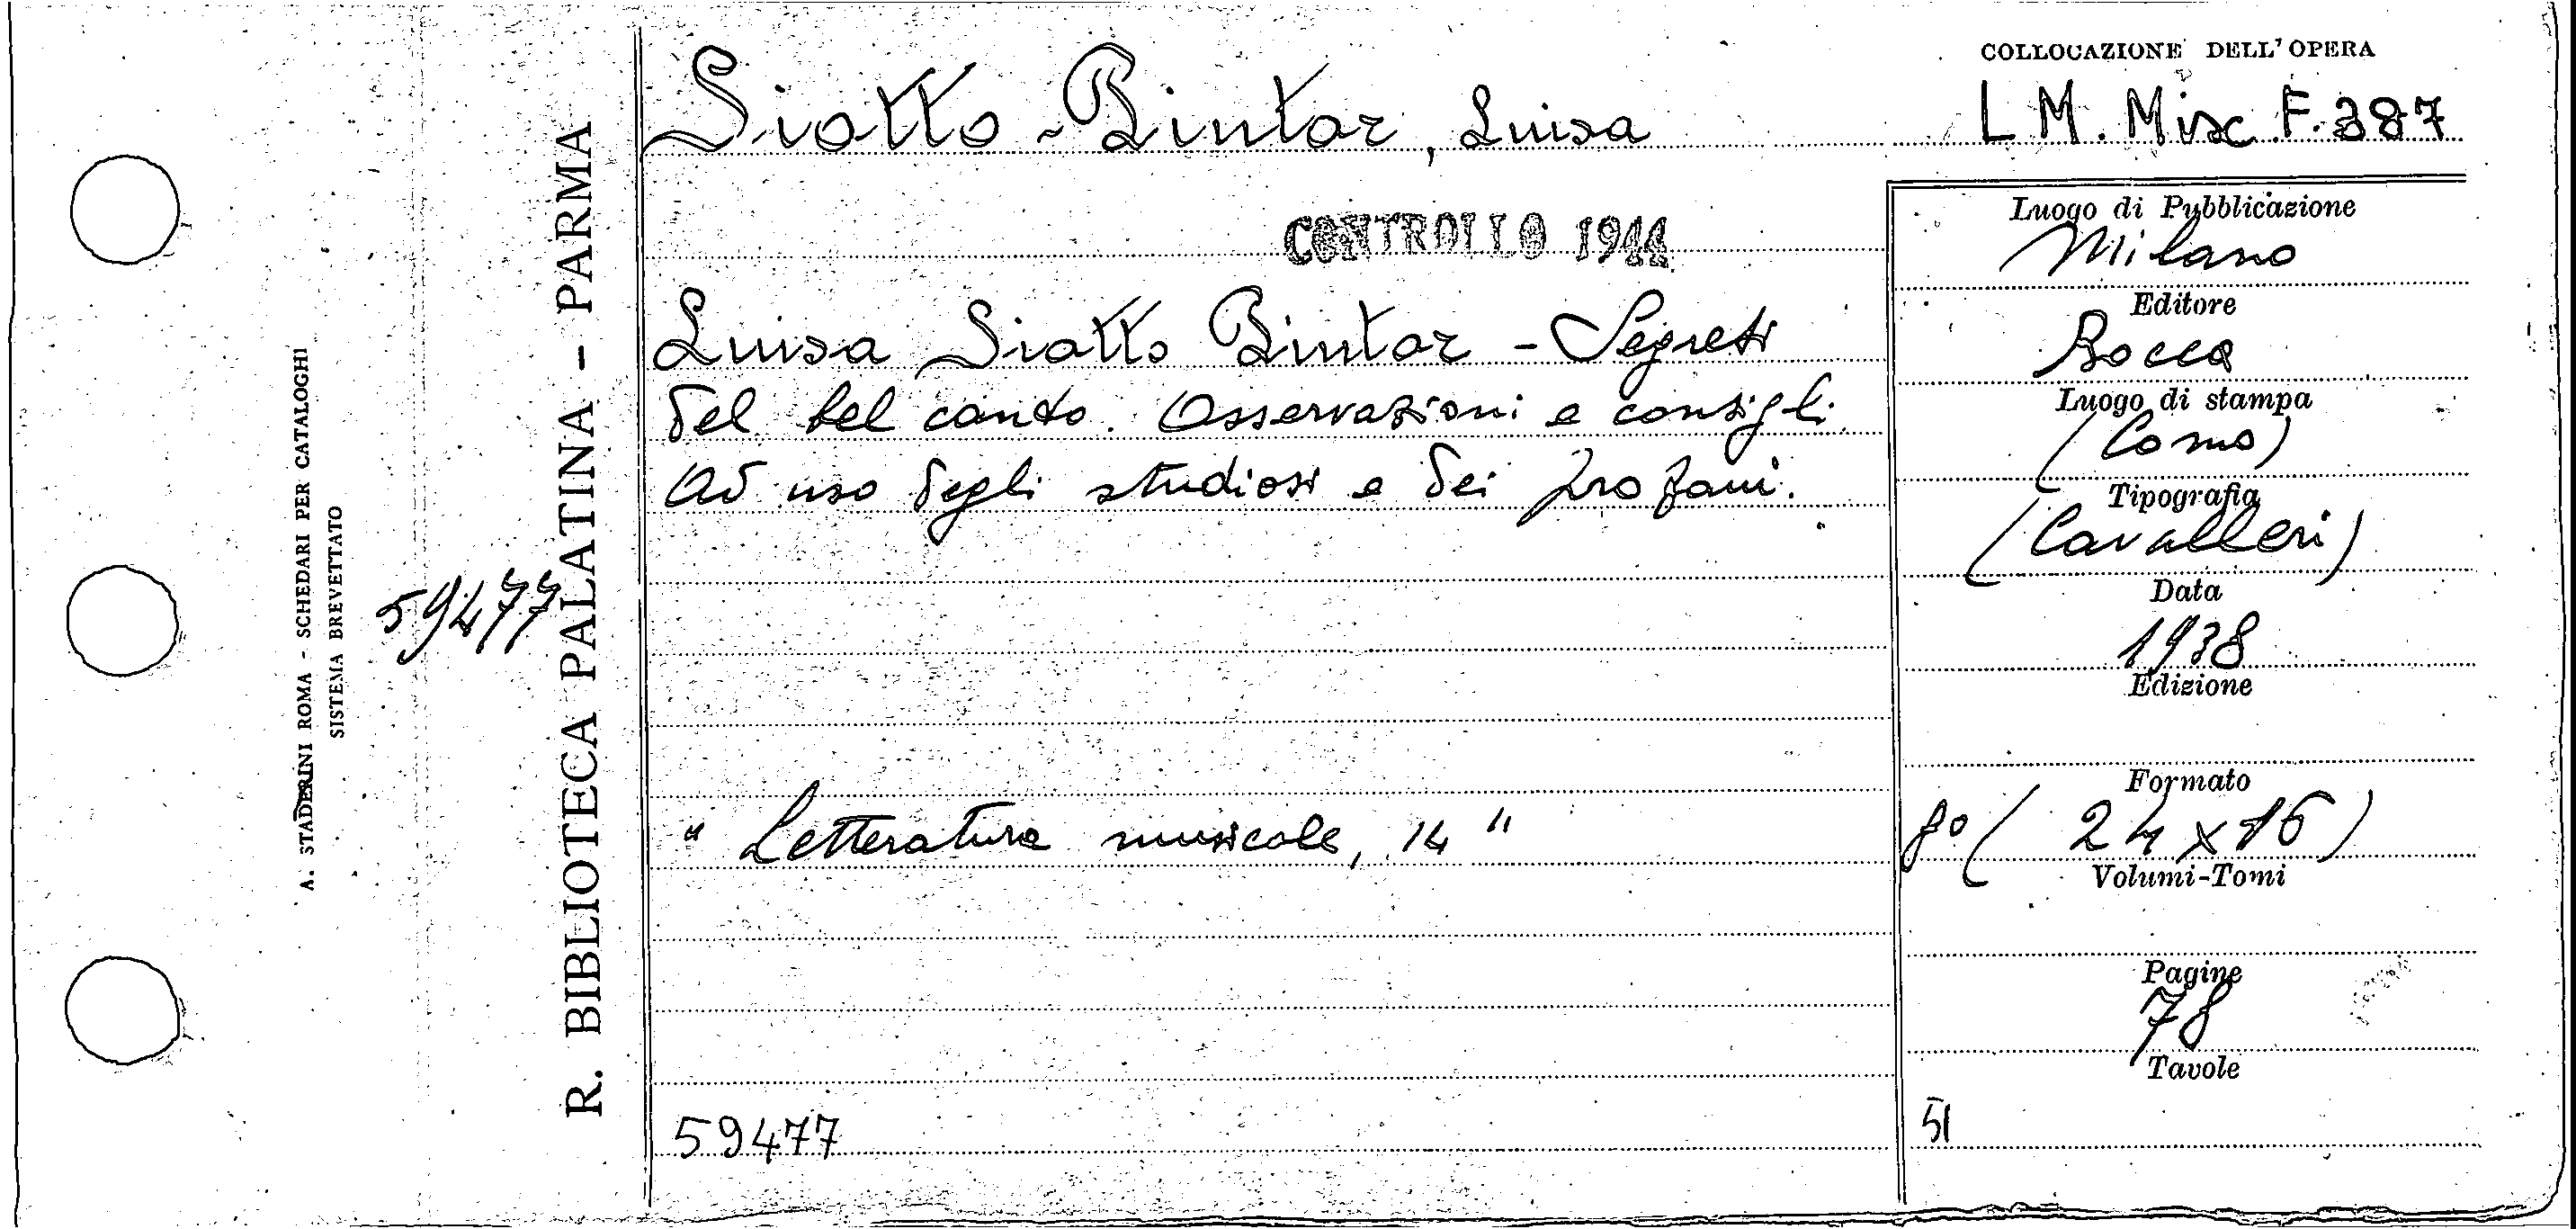 COLLOCAZIONE DELL'OPERA
Siotto-Pintor, Luisa
L.M. Misc. F. 387
CONTROLLO 1944
Luisa Siotto Pintor - Segreti
del bel canto. Osservazioni e consigli
ad uso degli studiosi e dei profani.
"Letteratura musicale, 14"
59477
Luogo di Pubblicazione
Milano
Editore
Bocca
Luogo di stampa
(Como)
Tipografia
(Cavalleri)
Data
1938
Edizione
Formato
8° (24 x 16)
Volumi-Tomi
Pagine
78
Tavole
51
R. BIBLIOTECA PALATINA - PARMA
59477
A. STADERINI ROMA - SCHEDARI PER CATALOGHI
SISTEMA BREVETTATO